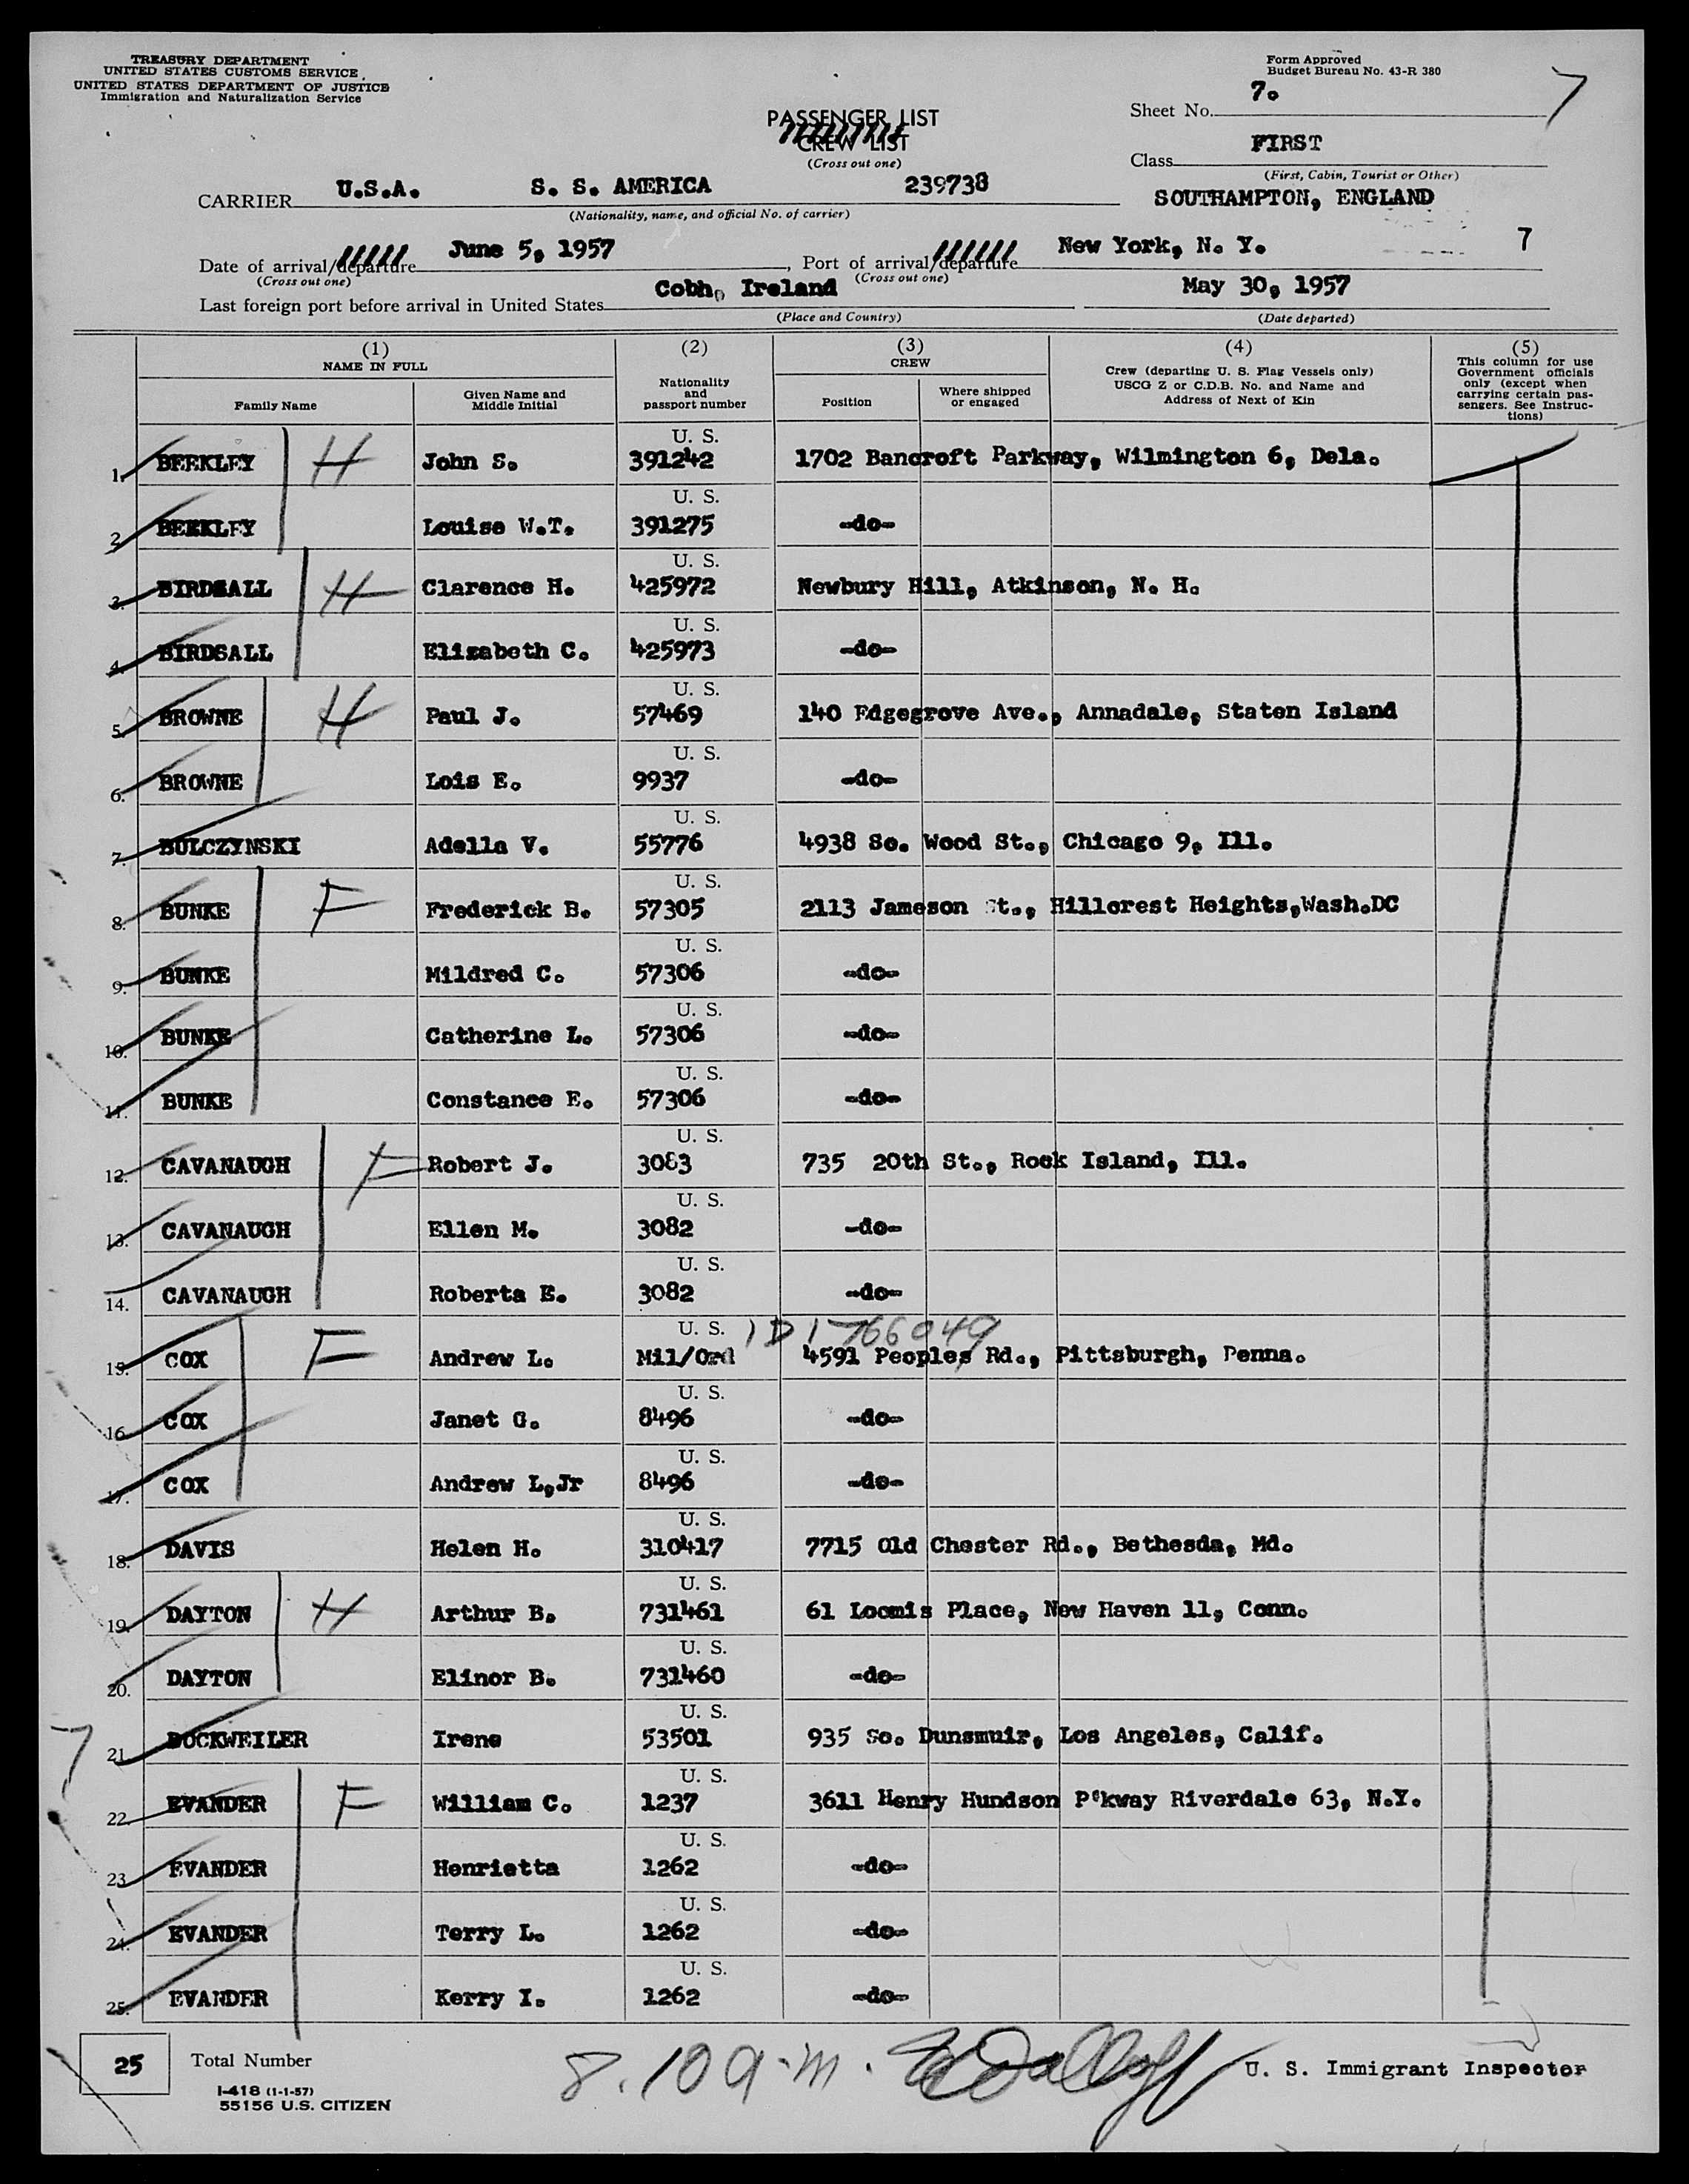 TREASURY DEPARTMENT
UNITED STATES CUSTOMS SERVICE
UNITED STATES DEPARTMENT OF JUSTICE
Immigration and Naturalization Service
Form Approved
Budget Bureau No. 43-R 380
PASSENGER LIST
CREW LIST
(Cross out one)
Sheet No. 7.
7
Class FIRST
(First, Cabin, Tourist or Other)
CARRIER U.S.A. S. S. AMERICA 239738
(Nationality, name, and official No. of carrier)
SOUTHAMPTON, ENGLAND
Date of arrival/departure June 5, 1957, Port of arrival/departure New York, N. Y. 7
(Cross out one) (Cross out one)
Last foreign port before arrival in United States Cobh, Ireland May 30, 1957
(Place and Country) (Date departed)
(1) NAME IN FULL
Family Name
Given Name and Middle Initial
(2)
Nationality and passport number
(3) CREW
Position
Where shipped or engaged
(4)
Crew (departing U. S. Flag Vessels only)
USCG Z or C.D.B. No. and Name and
Address of Next of Kin
(5)
This column for use
Government officials
only (except when
carrying certain pas-
sengers. See Instruc-
tions)
1. BEEKLEY H John S. U. S. 391242 1702 Bancroft Parkway, Wilmington 6, Dela.
2. BEEKLEY Louise W.T. U. S. 391275 -do-
3. BIRDSALL H Clarence H. U. S. 425972 Newbury Hill, Atkinson, N. H.
4. BIRDSALL Elizabeth C. U. S. 425973 -do-
5. BROWNE H Paul J. U. S. 57469 140 Edgegrove Ave., Annadale, Staten Island
6. BROWNE Lois E. U. S. 9937 -do-
7. BULCZYNSKI Adella V. U. S. 55776 4938 So. Wood St., Chicago 9, Ill.
8. BUNKE F Frederick B. U. S. 57305 2113 Jameson St., Hillcrest Heights,Wash.DC
9. BUNKE Mildred C. U. S. 57306 -do-
10. BUNKE Catherine L. U. S. 57306 -do-
11. BUNKE Constance E. U. S. 57306 -do-
12. CAVANAUGH F Robert J. U. S. 3083 735 20th St., Rock Island, Ill.
13. CAVANAUGH Ellen M. U. S. 3082 -do-
14. CAVANAUGH Roberta E. U. S. 3082 -do-
15. COX F Andrew L. U. S. Mil/Ord ID 1766049 4591 Peoples Rd., Pittsburgh, Penna.
16. COX Janet G. U. S. 8496 -do-
17. COX Andrew L,Jr U. S. 8496 -do-
18. DAVIS Helen H. U. S. 310417 7715 Old Chester Rd., Bethesda, Md.
19. DAYTON H Arthur B. U. S. 731461 61 Loomis Place, New Haven 11, Conn.
20. DAYTON Elinor B. U. S. 731460 -do-
7
21. DOCKWEILER Irene U. S. 53501 935 So. Dunsmuir, Los Angeles, Calif.
22. EVANDER F William C. U. S. 1237 3611 Henry Hundson P'kway Riverdale 63, N.Y.
23. EVANDER Henrietta U. S. 1262 -do-
24. EVANDER Terry L. U. S. 1262 -do-
25. EVANDER Kerry I. U. S. 1262 -do-
25 Total Number
8.10 a.m.
U. S. Immigrant Inspector
I-418 (1-1-57)
55156 U.S. CITIZEN